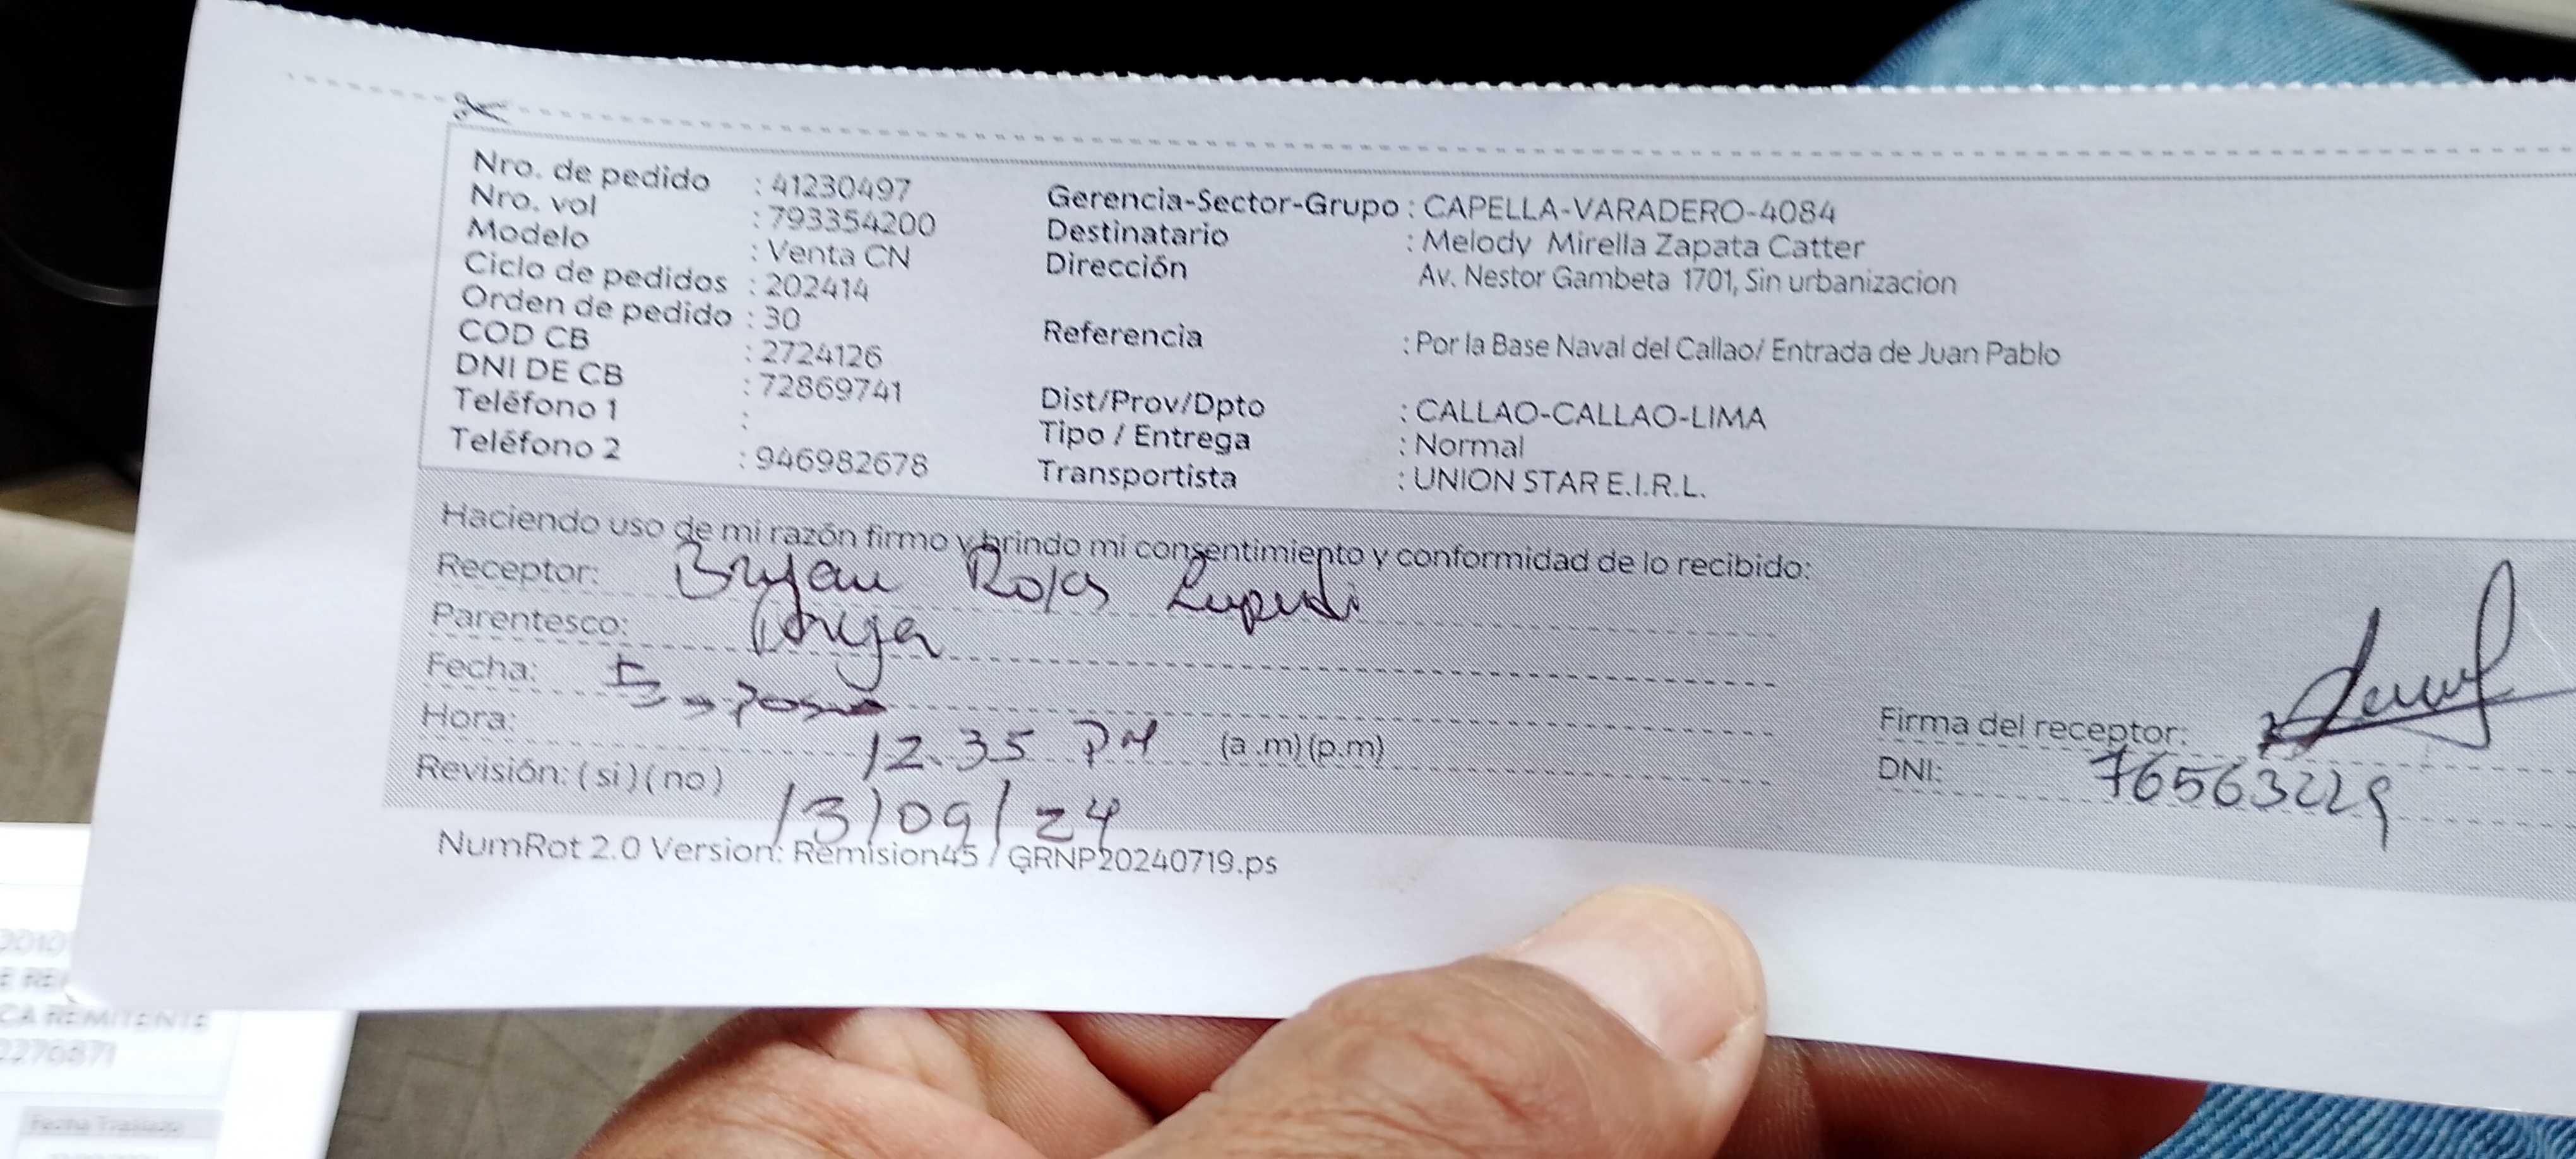 Nro. de pedido : 41230497
Nro. vol : 793354200
Modelo : Venta CN
Ciclo de pedidos : 202414
Orden de pedido : 30
COD CB : 2724126
DNI DE CB : 72869741
Teléfono 1 :
Teléfono 2 : 946982678
Gerencia-Sector-Grupo : CAPELLA-VARADERO-4084
Destinatario : Melody Mirella Zapata Catter
Dirección Av. Nestor Gambeta 1701, Sin urbanizacion
Referencia : Por la Base Naval del Callao/ Entrada de Juan Pablo
Dist/Prov/Dpto : CALLAO-CALLAO-LIMA
Tipo / Entrega : Normal
Transportista : UNION STAR E.I.R.L.
Haciendo uso de mi razón firmo y brindo mi consentimiento y conformidad de lo recibido:
Receptor: Bryan Rojas
Parentesco:
Fecha:
Hora: 12.35 PM (a.m) (p.m)
Revisión: ( si ) ( no ) 13/09/24
Firma del receptor:
DNI: 76563229
NumRot 2.0 Version: Remision45 / GRNP20240719.ps
CA REMITENTE